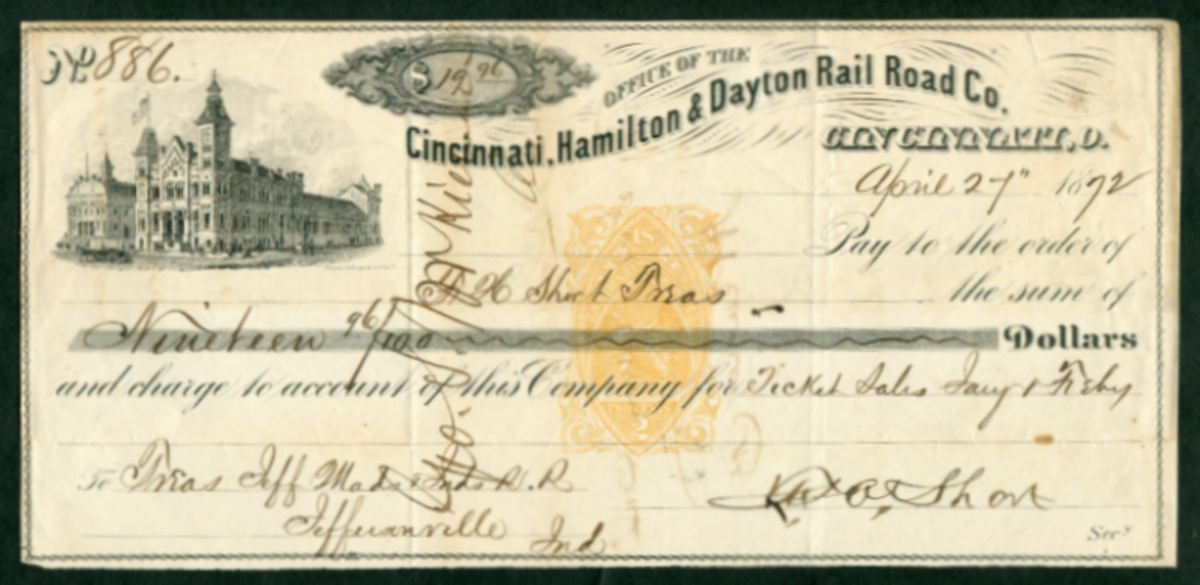 No. 886.
$ 19 96
OFFICE OF THE
Cincinnati, Hamilton & Dayton Rail Road Co.
CINCINNATI, O.
April 27" 1872
Pay to the order of
F H Short Treas the sum of
Nineteen 96/100 Dollars
and charge to account of this Company for Ticket Sales Jany & Feby
To Treas Jeff Mad & Inds R.R
Short
Jeffersonville Ind
Secy